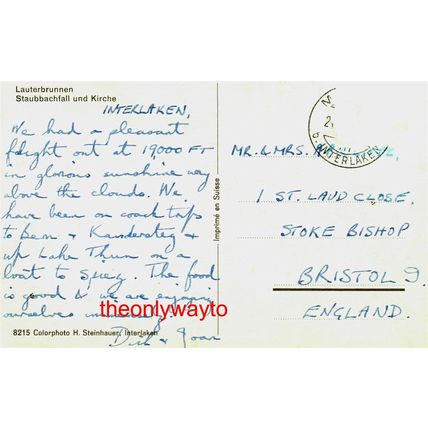 Lauterbrunnen
Staubbachfall und Kirche
INTERLAKEN,
We had a pleasant
flight out at 19,000 FT
in glorious sunshine way
above the clouds. We
have been on coach trips
to Bern & Kandersteg &
up Lake Thun on a
boat to Spiez. The food
is good & we are enjoying
ourselves
Dick & Joan
8215 Colorphoto H. Steinhauer, Interlaken
Imprimé en Suisse
INTERLAKEN
MR. & MRS.
1 ST. LAUD CLOSE,
STOKE BISHOP
BRISTOL 9.
ENGLAND.
theonlywayto